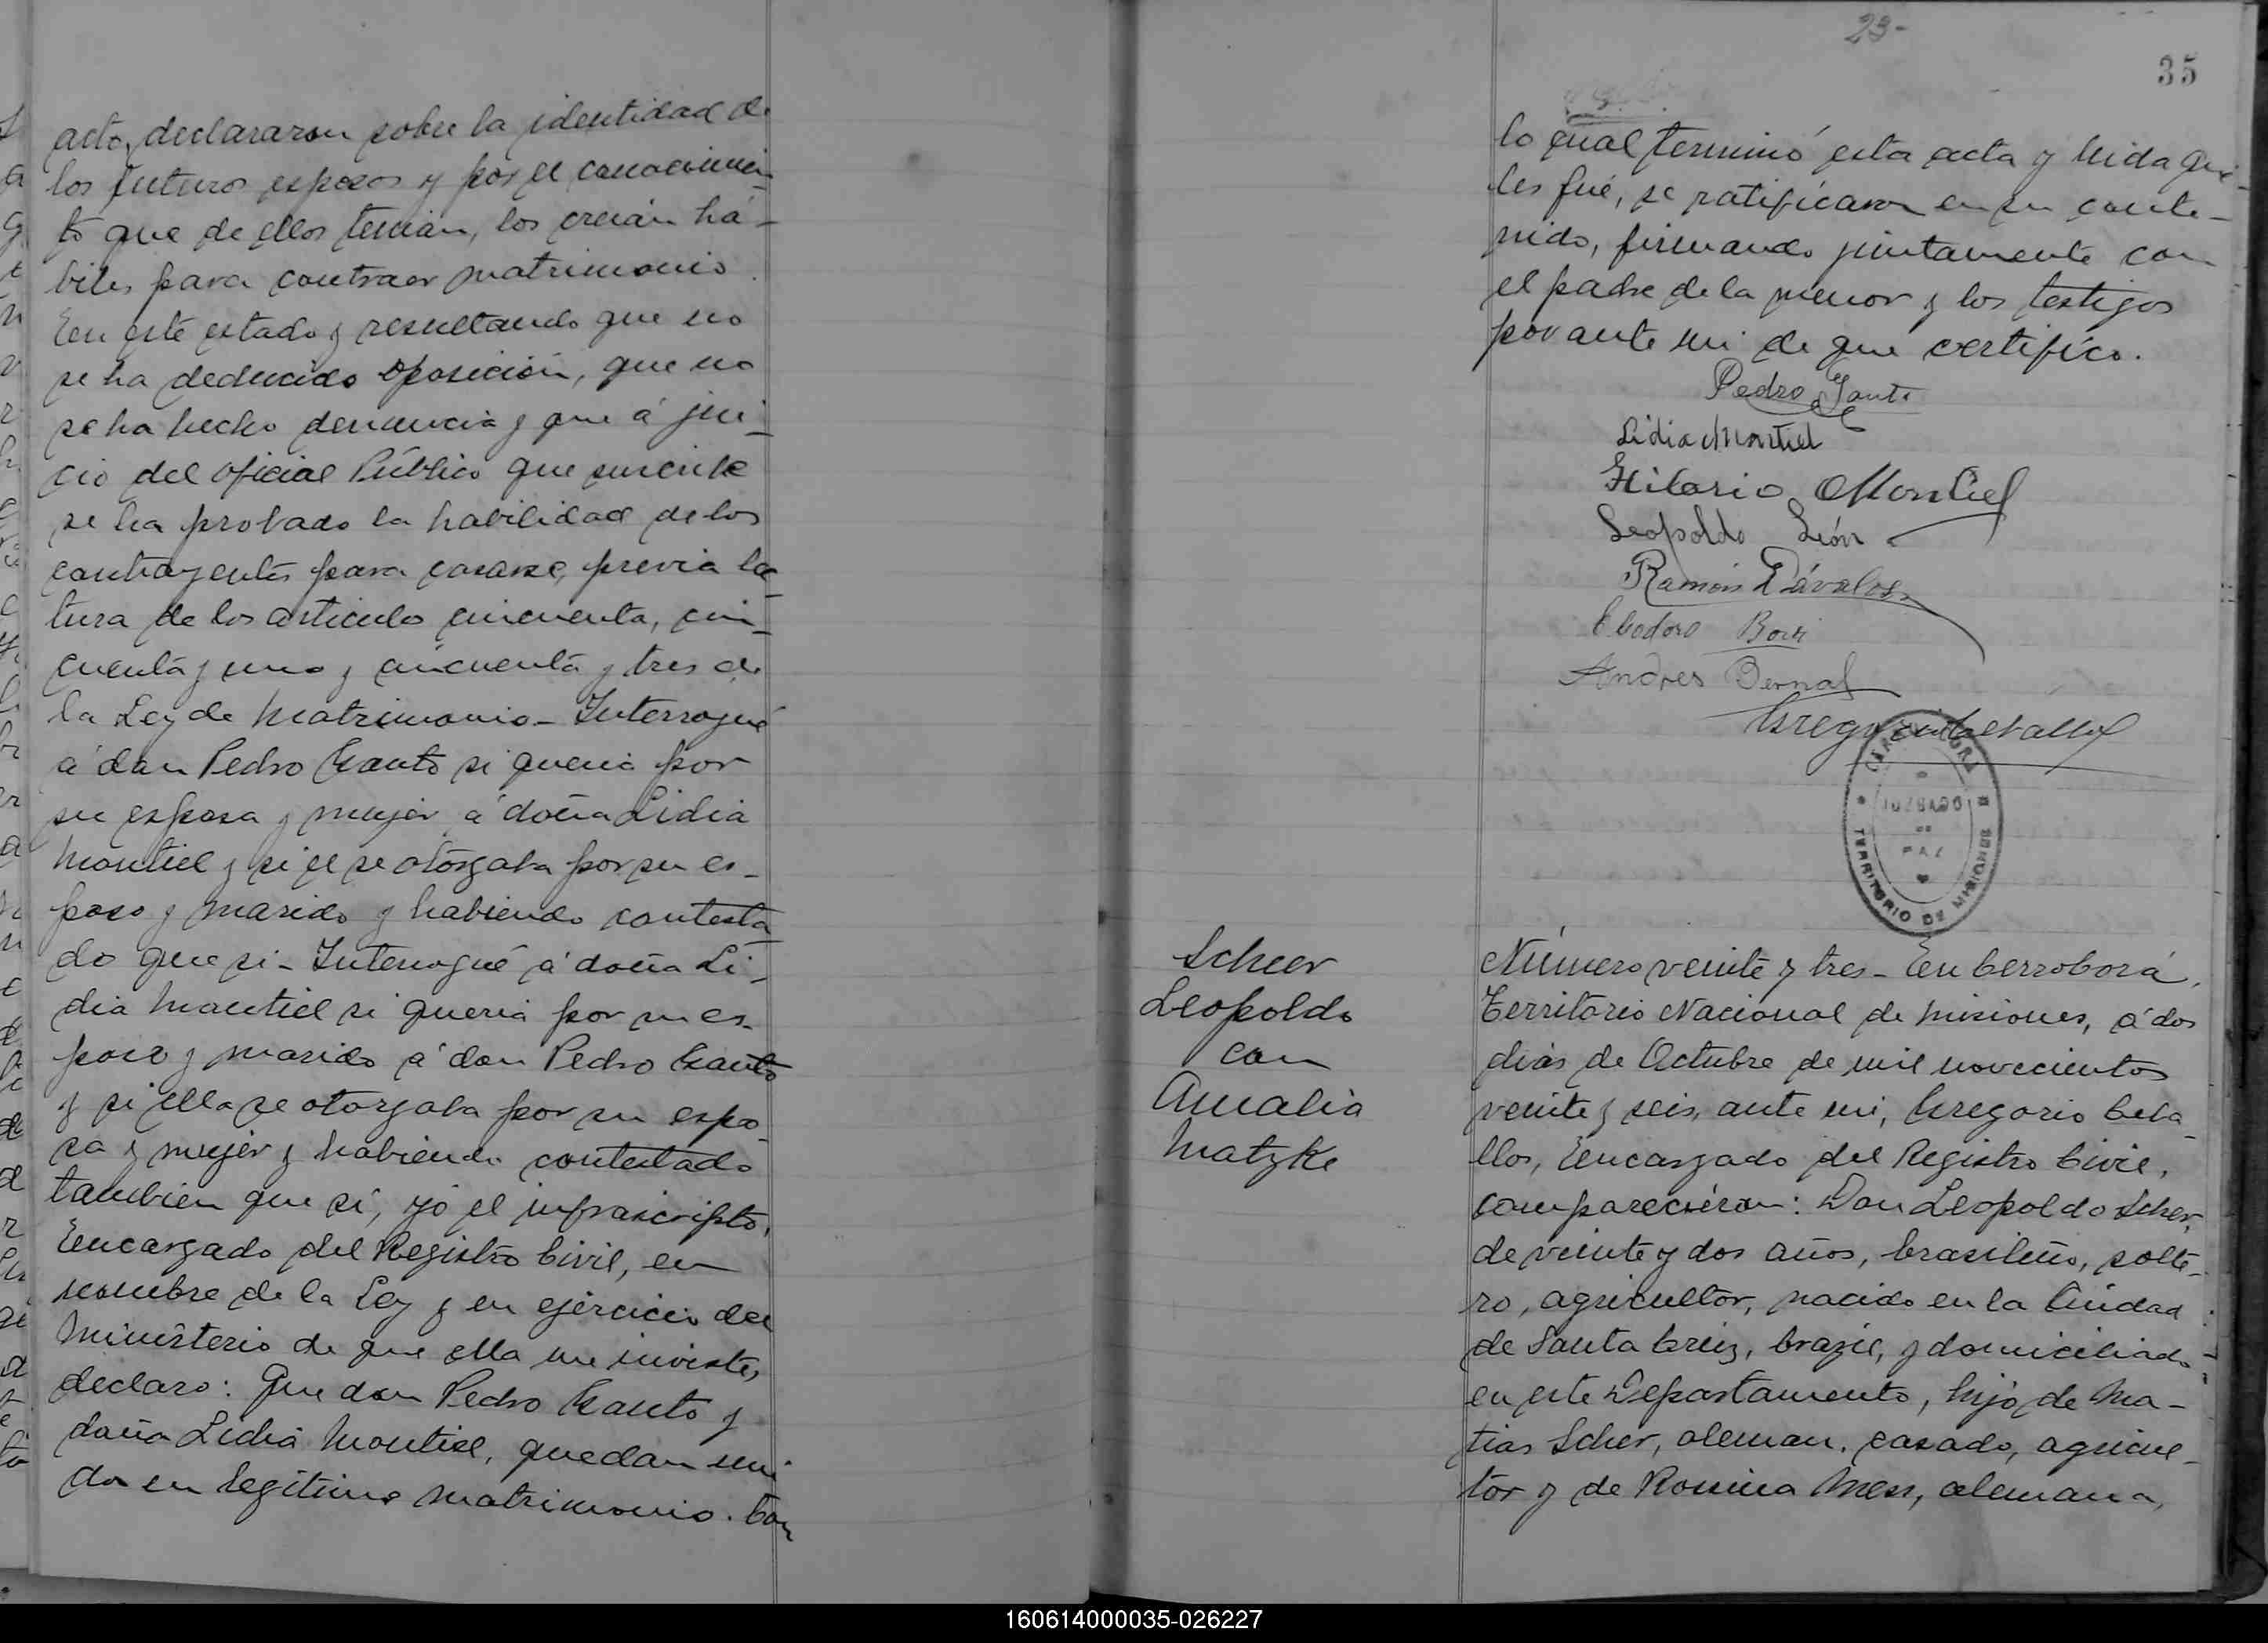 acto, declararon sobre la identidad de
los futuros esposos y por el conocimien_
to que de ellos tenian, los creian há_
biles para contraer matrimonio.
En este estado y resultando que no
se ha deducido oposición, que no
se ha hecho denuncia y que á jui_
cio del oficial Público que suscribe
se ha probado la habilidad de los
contrayentes para casarse, previa lec_
tura de los articulos cincuenta, cin_
cuenta y uno y cincuenta y tres de
la Ley de Matrimonio_ Interrogué
á don Pedro Gauto si queria por
su esposa y mujer á doña Lidia
Montiel y si el se otorgaba por su es_
poso y marido y habiendo contesta_
do que si_ Interrogué á doña Li_
dia Montiel si queria por su es_
poso y marido á don Pedro Gauto
y si ella se otorgaba por su espo_
sa y mujer y habiendo contestado
tambien que sí, yo el infrascripto,
Encargado del Registro Civil, en
nombre de la Ley y en ejercicio del
Ministerio de que ella me inviste,
declaro: Que don Pedro Gauto y
doña Lidia Montiel, quedan uni
dos en legitimo matrimonio. Con
23-
35
lo cual terminó esta acta y leida que_
les fué, se ratificaron en su conte_
nido, firmando juntamente con
el padre de la menor y los testigos
por ante mi de que certifico.
Pedro Gauto
Lidia Montiel
Hilario Montiel
Leopoldo León
Ramón Dávalos
Eleodoro
Andres Bernal
Gregorio Ceballos
JUZGADO
DE
PAZ
TERRITORIO DE MISIONES
Scheer
Leopoldo
con
Amalia
Matzke
Número veinte y tres_ En Cerro Corá,
Territorio Nacional de Misiones, á dos
dias de Octubre de mil novecientos
veinte y seis, ante mi, Gregorio Ceba_
llos, Encargado del Registro Civil,
comparecieron: Don Leopoldo Scher,
de veinte y dos años, brasileño, solte_
ro, agricultor, nacido en la Ciudad
de Santa Cruz, Brazil, y domiciliado
en este Departamento, hijo de Ma_
tias Scher, aleman, casado, agricul_
tor y de Rosina Mess, alemana,
160614000035-026227